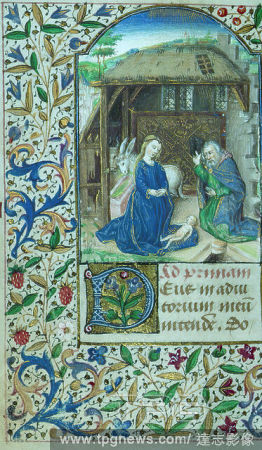 Ad primam
Deus in adiu
torium meū
intende. Do
www.tpgnews.com / 達志影像